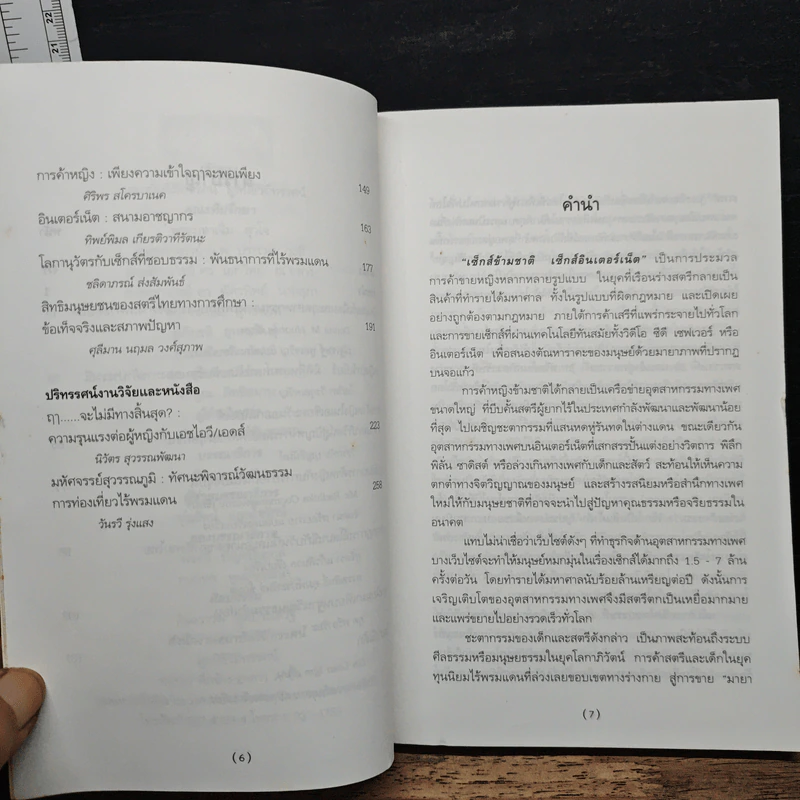 22
21
การค้าหญิง : เพียงความเข้าใจฤๅจะพอเพียง 149
ศิริพร สโครบาเนค
อินเตอร์เน็ต : สนามอาชญากร 163
ทิพย์พิมล เกียรติวาทีรัตนะ
โลกานุวัตรกับเซ็กส์ที่ชอบธรรม : พันธนาการที่ไร้พรมแดน 177
ชลิดาภรณ์ ส่งสัมพันธ์
สิทธิมนุษยชนของสตรีไทยทางการศึกษา :
ข้อเท็จจริงและสภาพปัญหา 191
ศุลีมาน นฤมล วงศ์สุภาพ
ปริทรรศน์งานวิจัยและหนังสือ
ฤๅ......จะไม่มีทางสิ้นสุด? :
ความรุนแรงต่อผู้หญิงกับเอชไอวี/เอดส์ 223
นิวัตร สุวรรณพัฒนา
มหัศจรรย์สุวรรณภูมิ : ทัศนะพิจารณ์วัฒนธรรม
การท่องเที่ยวไร้พรมแดน 258
วันรวี รุ่งแสง
(6)
คำนำ
"เซ็กส์ข้ามชาติ เซ็กส์อินเตอร์เน็ต" เป็นการประมวล
การค้าขายหญิงหลากหลายรูปแบบ ในยุคที่เรือนร่างสตรีกลายเป็น
สินค้าที่ทำรายได้มหาศาล ทั้งในรูปแบบที่ผิดกฎหมาย และเปิดเผย
อย่างถูกต้องตามกฎหมาย ภายใต้การค้าเสรีที่แพร่กระจายไปทั่วโลก
และการขายเซ็กส์ที่ผ่านเทคโนโลยีทันสมัยทั้งวิดีโอ ซีดี เซฟเวอร์ หรือ
อินเตอร์เน็ต เพื่อสนองตัณหาราคะของมนุษย์ด้วยมายาภาพที่ปรากฎ
บนจอแก้ว
การค้าหญิงข้ามชาติได้กลายเป็นเครือข่ายอุตสาหกรรมทางเพศ
ขนาดใหญ่ ที่บีบคั้นสตรีผู้ยากไร้ในประเทศกำลังพัฒนาและพัฒนาน้อย
ที่สุด ไปเผชิญชะตากรรมที่แสนหดหู่รันทดในต่างแดน ขณะเดียวกัน
อุตสาหกรรมทางเพศบนอินเตอร์เน็ตที่เสกสรรปั้นแต่งอย่างวิตถาร พิลึก
พิลั่น ซาดิสต์ หรือล่วงเกินทางเพศกับเด็กและสัตว์ สะท้อนให้เห็นความ
ตกต่ำทางจิตวิญญาณของมนุษย์ และสร้างรสนิยมหรือสำนึกทางเพศ
ใหม่ให้กับมนุษยชาติที่อาจจะนำไปสู่ปัญหาคุณธรรมหรือจริยธรรมใน
อนาคต
แทบไม่น่าเชื่อว่าเว็บไซต์ดังๆ ที่ทำธุรกิจด้านอุตสาหกรรมทางเพศ
บางเว็บไซต์จะทำให้มนุษย์หมกมุ่นในเรื่องเซ็กส์ได้มากถึง 1.5 - 7 ล้าน
ครั้งต่อวัน โดยทำรายได้มหาศาลนับร้อยล้านเหรียญต่อปี ดังนั้นการ
เจริญเติบโตของอุตสาหกรรมทางเพศจึงมีสตรีตกเป็นเหยื่อมากมาย
และแพร่ขยายไปอย่างรวดเร็วทั่วโลก
ชะตากรรมของเด็กและสตรีดังกล่าว เป็นภาพสะท้อนถึงระบบ
ศีลธรรมหรือมนุษยธรรมในยุคโลกาภิวัตน์ การค้าสตรีและเด็กในยุค
ทุนนิยมไร้พรมแดนที่ล่วงเลยขอบเขตทางร่างกาย สู่การขาย "มายา
(7)